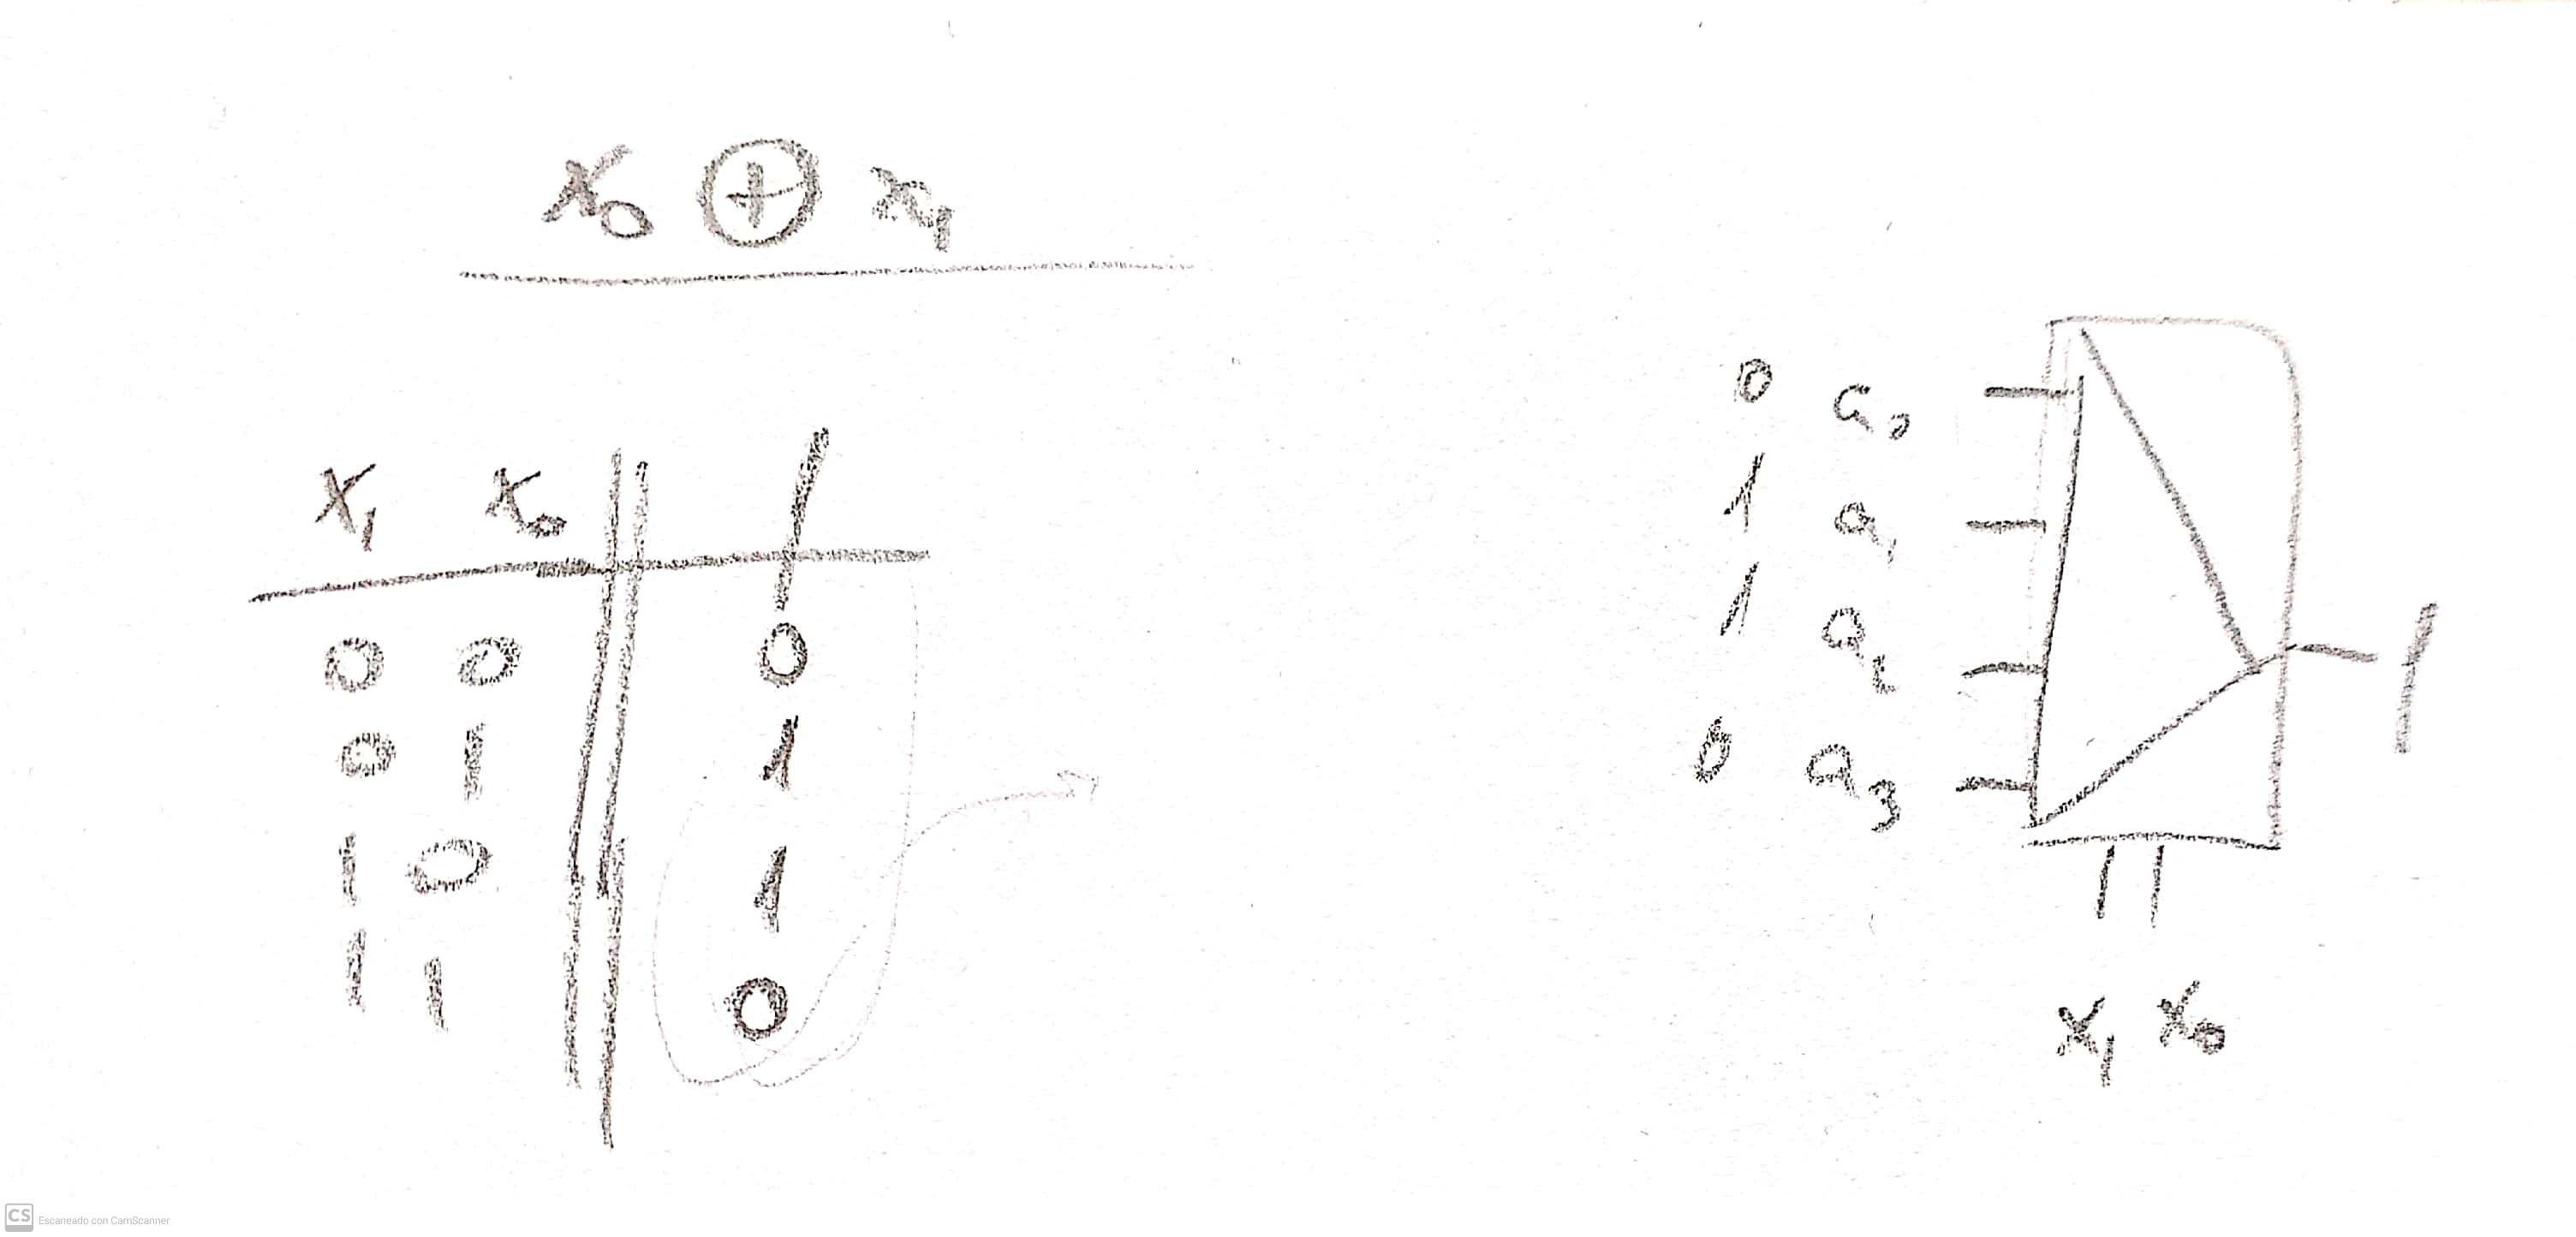 x₀ ⊕ x₁
x₁ x₀ f
0 0 0
0 1 1
1 0 1
1 1 0
0 a₀
1 a₁
1 a₂
0 a₃
f
x₁ x₀
CS Escaneado con CamScanner